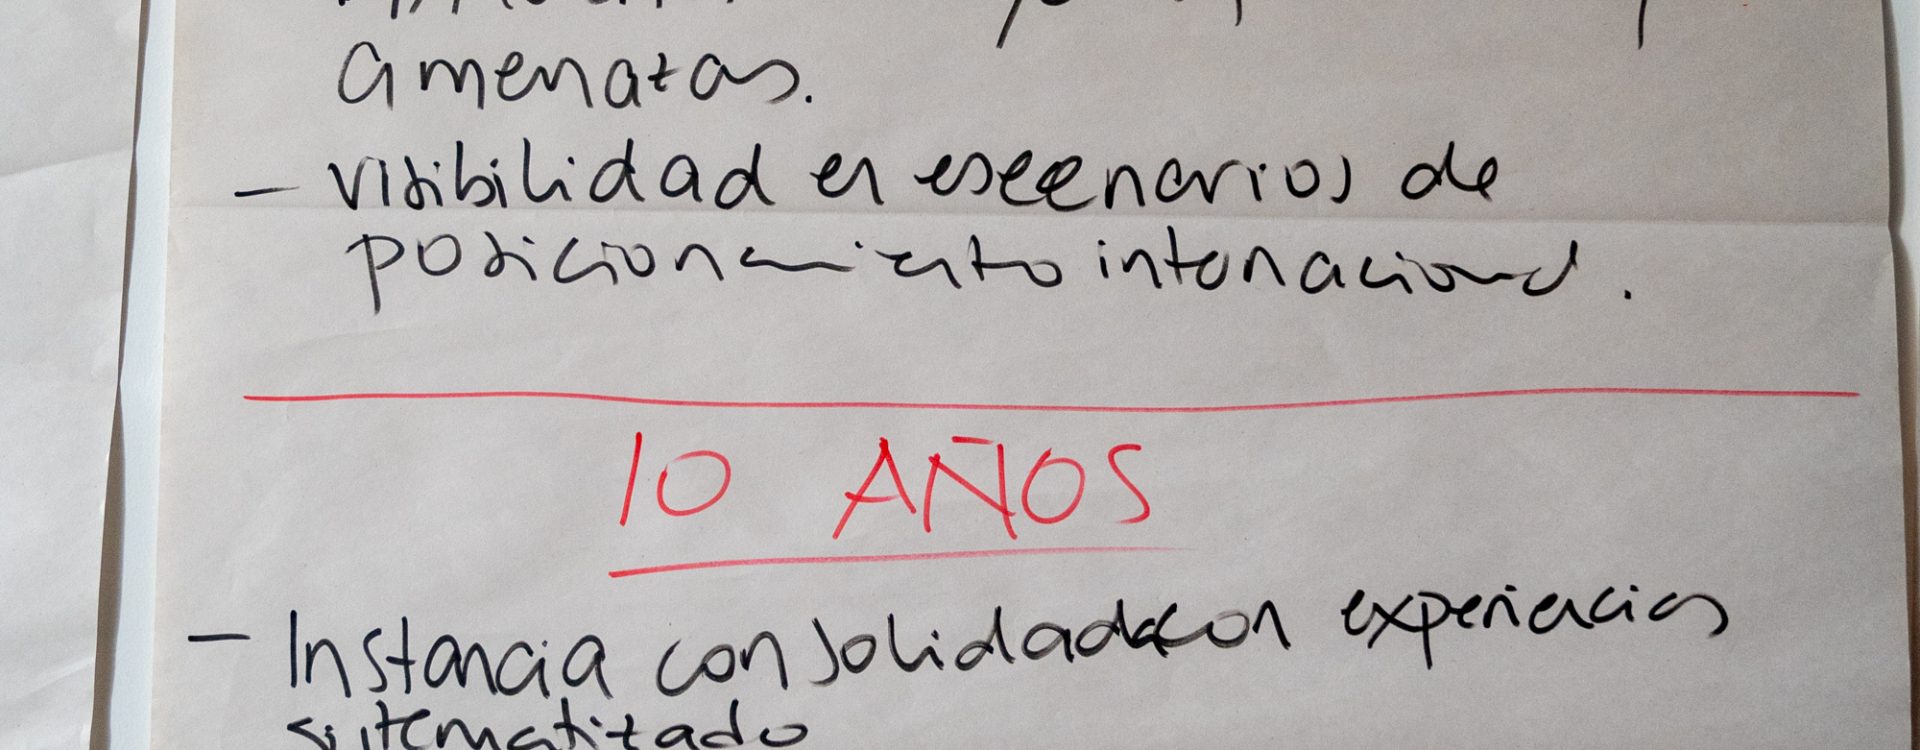 amenazas.
- visibilidad en escenarios de
posicionamiento internacional.
10 AÑOS
- Instancia consolidada con experiencias
sistematizado